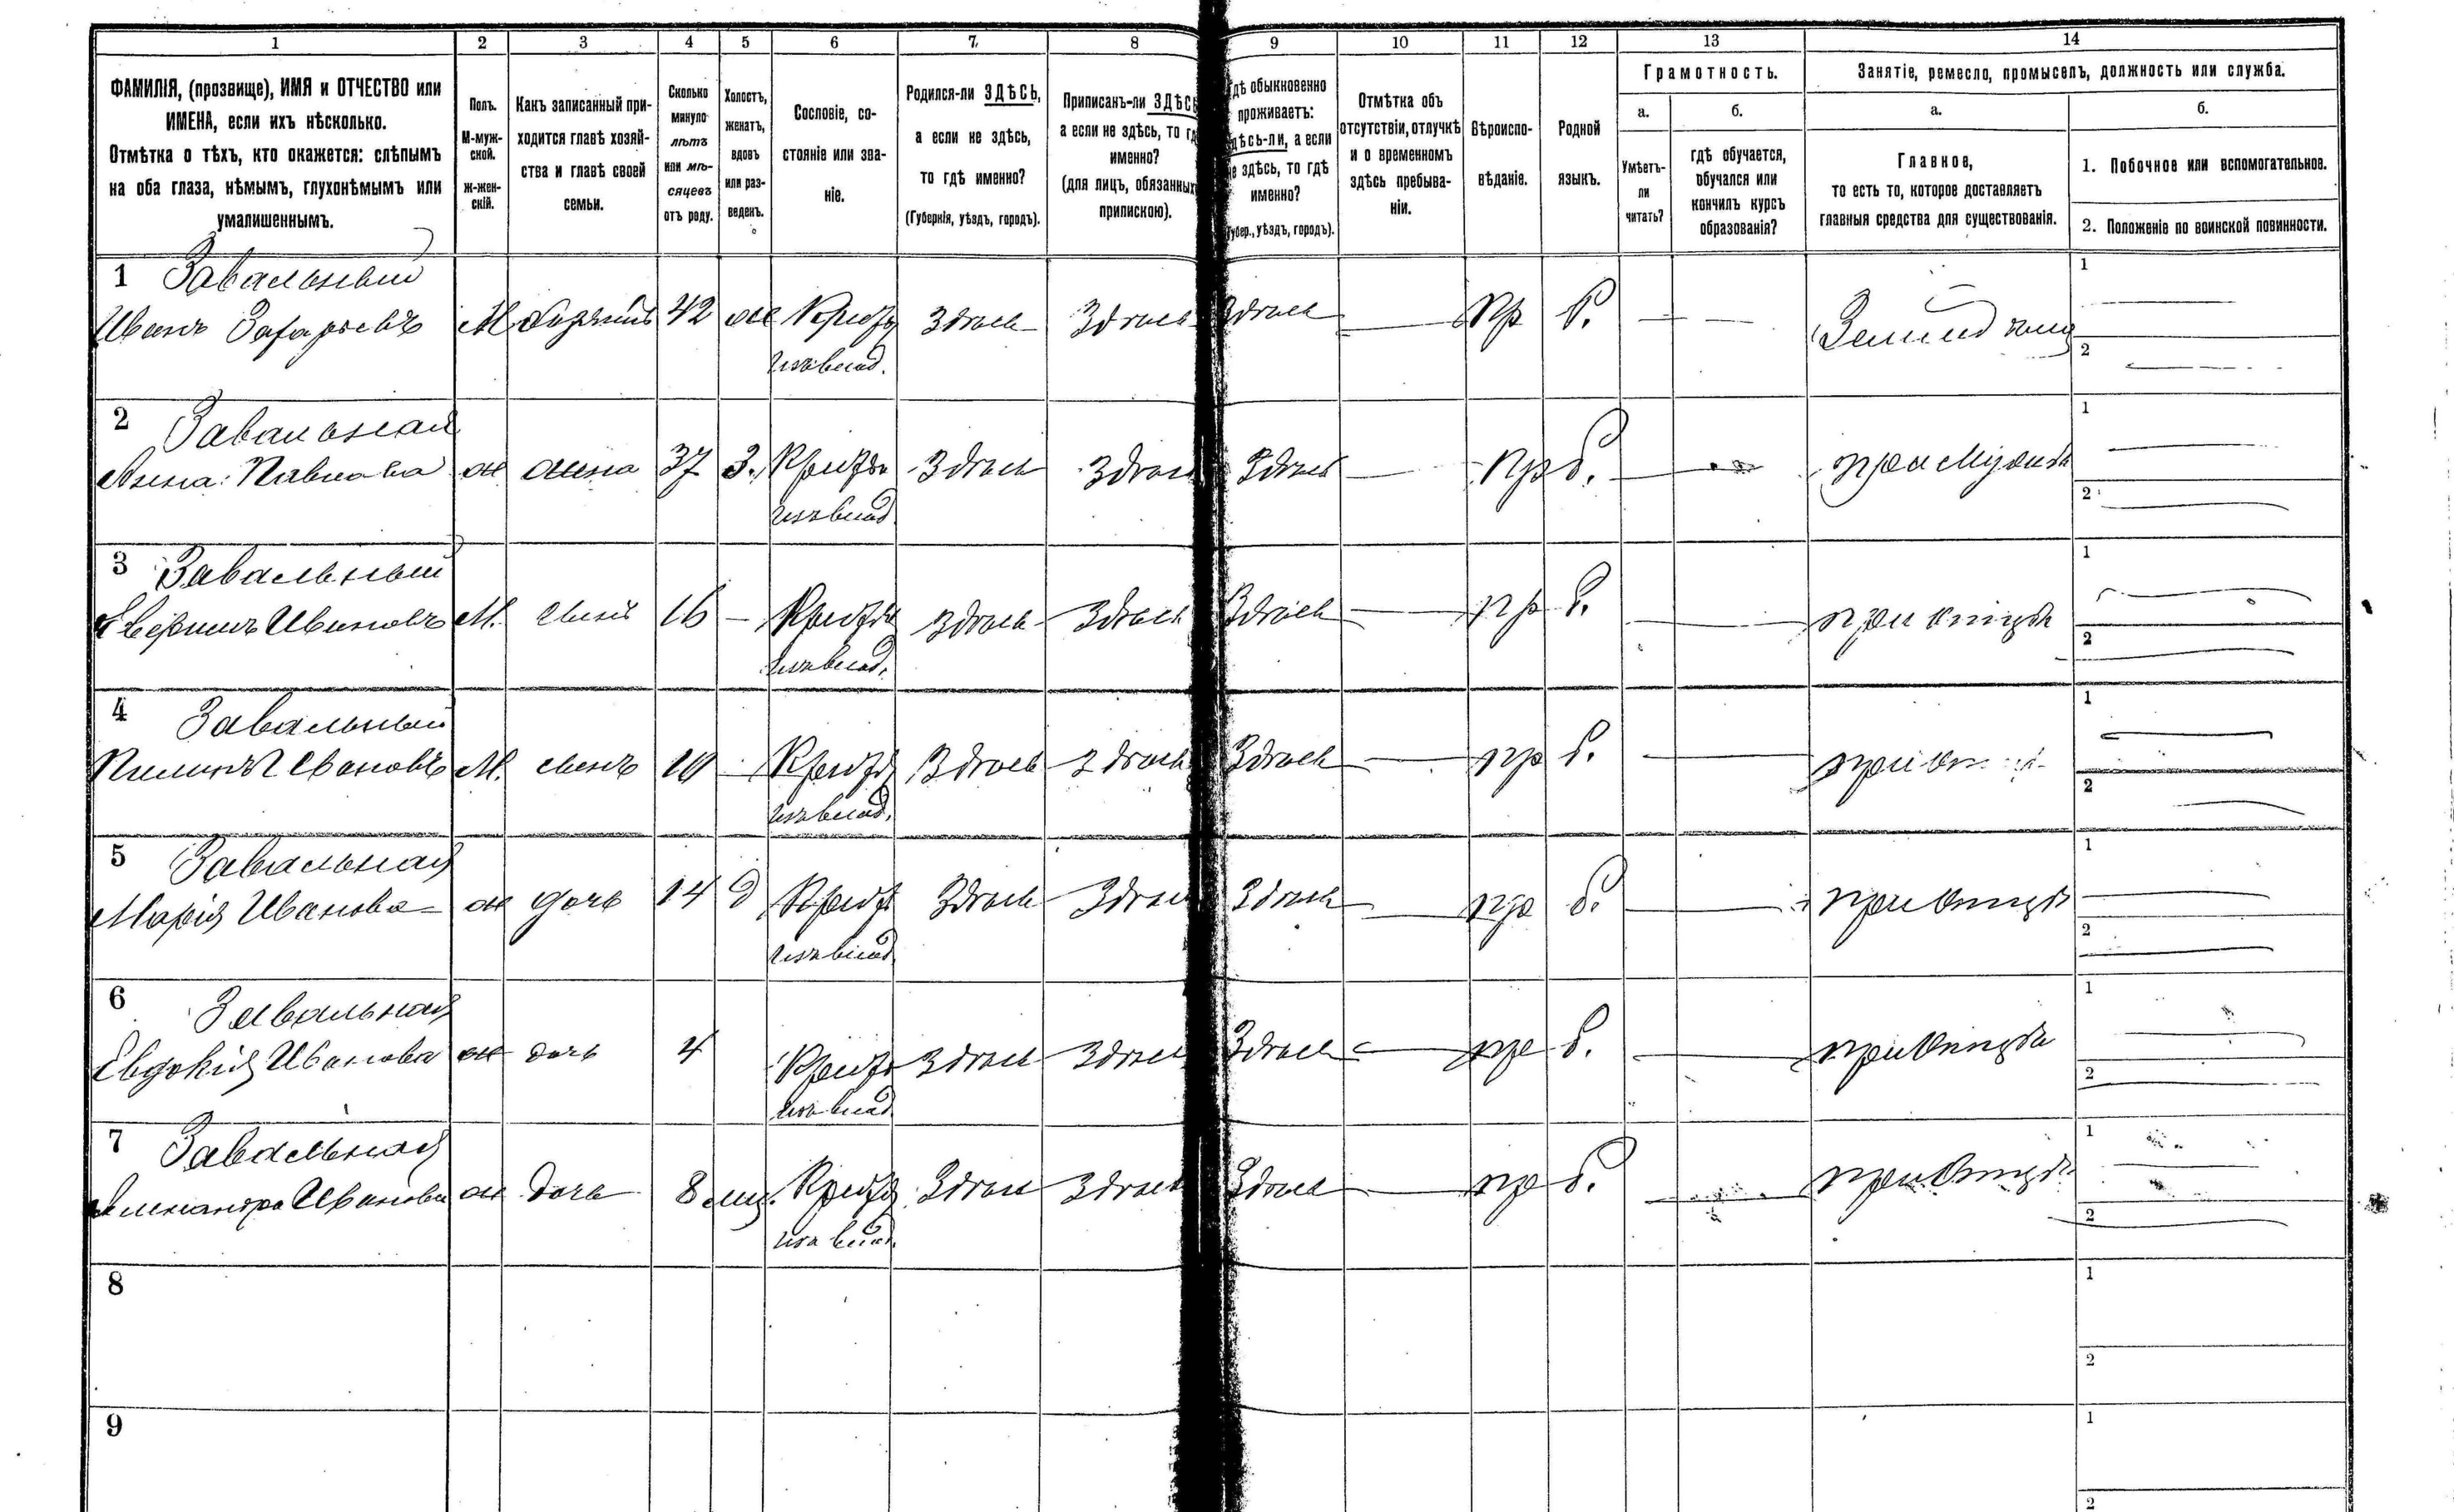 1 2 3 4 5 6 7. 8 9 10 11 12 13 14
ФАМИЛІЯ, (прозвище), ИМЯ и ОТЧЕСТВО или
ИМЕНА, если ихъ нѣсколько.
Отмѣтка о тѣхъ, кто окажется: слѣпымъ
на оба глаза, нѣмымъ, глухонѣмымъ или
умалишеннымъ.
Полъ.
М-муж-
ской.
Ж-жен-
скій.
Какъ записанный при-
ходится главѣ хозяй-
ства и главѣ своей
семьи.
Сколько
минуло
лѣтъ
или мѣ-
сяцевъ
отъ роду.
Холостъ,
женатъ,
вдовъ
или раз-
веденъ.
Сословіе, со-
стояніе или зва-
ніе.
Родился-ли ЗДѢСЬ,
а если не здѣсь,
то гдѣ именно?
(Губернія, уѣздъ, городъ).
Приписанъ-ли ЗДѢСЬ
а если не здѣсь, то г
именно?
(для лицъ, обязанных
припискою).
гдѣ обыкновенно
проживаетъ:
здѣсь-ли, а если
не здѣсь, то гдѣ
именно?
Губер., уѣздъ, городъ).
Отмѣтка объ
отсутствіи, отлучкѣ
и о временномъ
здѣсь пребыва-
ніи.
Вѣроиспо-
вѣданіе.
Родной
языкъ.
Грамотность.
а. б.
Умѣетъ-
ли
читать?
гдѣ обучается,
обучался или
кончилъ курсъ
образованія?
Занятіе, ремесло, промыселъ, должность или служба.
а. б.
Главное,
то есть то, которое доставляетъ
главныя средства для существованія.
1. Побочное или вспомогательное.
2. Положеніе по воинской повинности.
1 Завальный 1
Иванъ Захарьевъ М 42 ж Здѣсь Здѣсь Здѣсь — Пр Б. — —
2
2 Завальная 1
Анна Павлова ж жена 37 З. Здѣсь Здѣсь Здѣсь — Пр Б. — при мужѣ
2
3 Завальный 1
Ивановъ М. сынъ 16 — Здѣсь Здѣсь Здѣсь — Пр Б. — при отцѣ
2
4 Завальный 1
Ивановъ М. сынъ 10 — Здѣсь Здѣсь Здѣсь — пр Б. —
2
5 Завальная 1
Марія Иванова ж дочь 14 Д Здѣсь Здѣсь Здѣсь — пр Б. — при отцѣ
2
6 Завальная 1
Евдокія Иванова ж дочь 4 Здѣсь Здѣсь Здѣсь — пр Б. — при отцѣ
2
7 Завальная 1
Александра Иванова ж дочь 8 мѣс. Здѣсь Здѣсь Здѣсь — пр Б. — при отцѣ
2
8 1
2
9 1
2